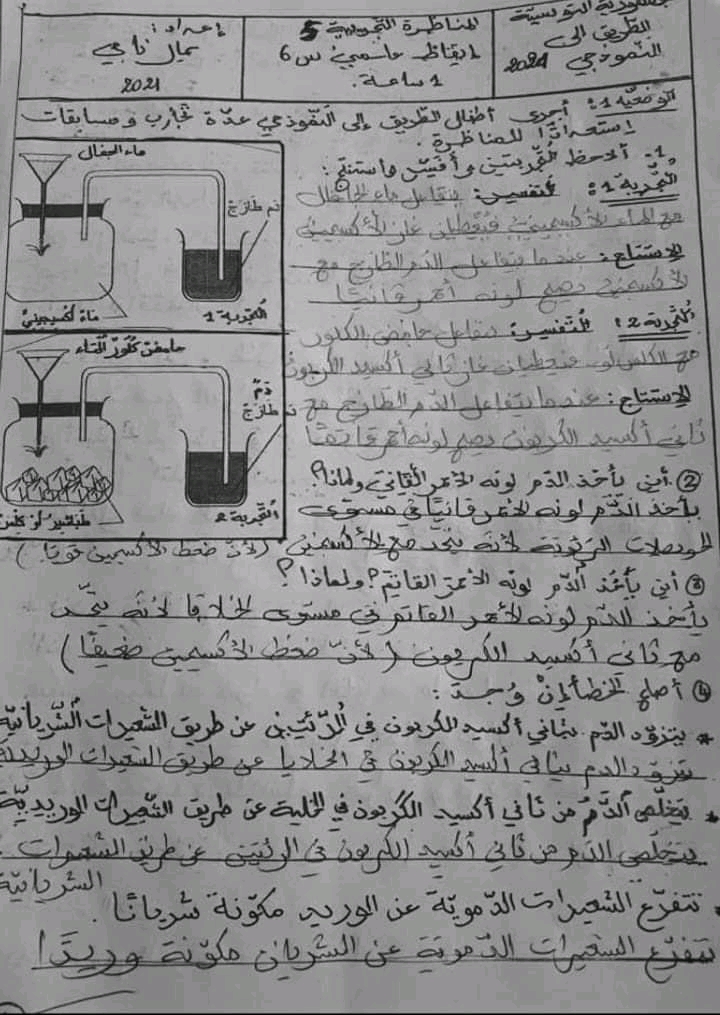 جمهورية التونسية
الطريق إلى
النموذجي 2021
المناظرة التجريبية 5
إيقاظ علمي س 6
1 ساعة.
إعداد:
نجي
2021
الوضعية 1: أجرى أطفال الطريق إلى النموذجي عدّة تجارب ومسابقات
استعدادًا للمناظرة.
1. ألاحظ التجربتين وأفسّر وأستنتج:
ماء الجفال
دم طازج
ماء أكسيجيني
التجربة 1
حامض كلور الماء
دم
دم طازج
طباشير أو كلس
التجربة 2
التجربة 1: التفسير: يتفاعل ماء الجافال
مع الماء الأكسجيني فيعطيان غاز الأكسجين
الاستنتاج: عندما يتفاعل الدم الطازج مع
الأكسجين يصبح لونه أحمر قانيًا
التجربة 2: التفسير: يتفاعل حامض الكلور
مع الكلس فيعطيان غاز ثاني أكسيد الكربون
الاستنتاج: عندما يتفاعل الدم الطازج مع
ثاني أكسيد الكربون يصبح لونه أحمر قاتمًا
② أين يأخذ الدّم لونه الأحمر القاني ولماذا؟
يأخذ الدّم لونه الأحمر قانيًا في مستوى
الحويصلات الرئوية لأنه يتّحد مع الأكسجين (لأنّ ضغط الأكسجين قويًا)
③ أين يأخُذ الدّم لونه الأحمر القاتم؟ ولماذا؟
يأخذ الدم لونه الأحمر القاتم في مستوى الخلايا لأنّه يتّحد
مع ثاني أكسيد الكربون (لأنّ ضغط الأكسجين ضعيفًا)
④ أصلح الخطأ إن وُجدَ:
* يتزوّد الدّم بثاني أكسيد الكربون في الرّئتين عن طريق الشعيرات الشّريانيّة
يتزوّد الدم بثاني أكسيد الكربون في الخلايا عن طريق الشعيرات الوريديّة
* يتخلّص الدّمُ من ثاني أكسيد الكربون في الخلية عن طريق الشّعيرات الوريديّة
يتخلّص الدّم من ثاني أكسيد الكربون في الرئتين عن طريق الشعيرات
الشريانيّة
. تتفرّع الشعيرات الدّمويّة عن الوريد مكوّنة شريانًا.
تتفرّع الشعيرات الدّمويّة عن الشريان مكوّنة وريدًا